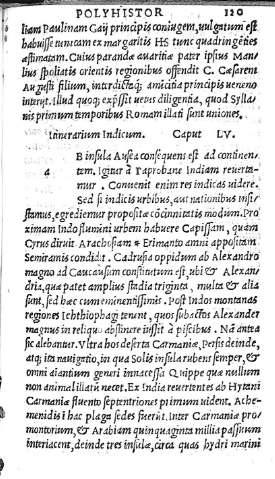 POLYHISTOR 120
liam Paulinam Gaij principis coniugem, vulgatum est
habuisse tunicam ex margaritis HS tunc quadringéties
æstimatam. Cuius parandæ avaritiæ pater ipsius Man/
lius spoliatis orientis regionibus offendit C. Cæsarem
Augusti filium, interdictaq; amicitia principis veneno
interijt. Illud quoq; expr̃ssit vetus diligentia, quod Sylla/
nis primum temporibus Romam illati sunt uniones.
Itinerarium Indicum. Caput LV.
B insula Ausea consequens est ad continen/
a tem. Igitur à Taprobane Indiam reuerta/
mur. Conuenit enim res indicas uidere.
Sed si indicis urbibus, aut nationibus insi/
stamus, egrediemur propositæ cōcinnitatis modum. Pro/
ximam Indo flumini urbem habuere Capissam, quam
Cyrus diruit. Arachosiam Erimanto amni appositam
Semiramis condidit. Cadrusia oppidum ab Alexandro
magno ad Caucasum constitutum est, ubi & Alexan/
dria, quæ patet amplius stadia triginta, multa & alia
sunt, sed hæc cum eminentissimis. Post Indos montanas
regiones Ichthiophagi tenent, quos subactos Alexander
magnus in reliquū abstinere iussit à piscibus. Nā antea
sic alebantur. Ultra hos deserta Carmaniæ, Persis deinde,
atq; ita nauigatio, in qua Solis insula rubens semper, &
omni aīantium generi innacessa Quippe quæ nullum
non animal illatū necet. Ex India reuertentes ab Hytani
Carmaniæ fluento septentriones primum uident. Ache/
menidis ī hac plaga sedes fuerūt. Inter Carmaniæ pro/
montorium, & Arabiam quinquaginta millia passuum
interiacent, deinde tres insulæ, circa quas hydri marini